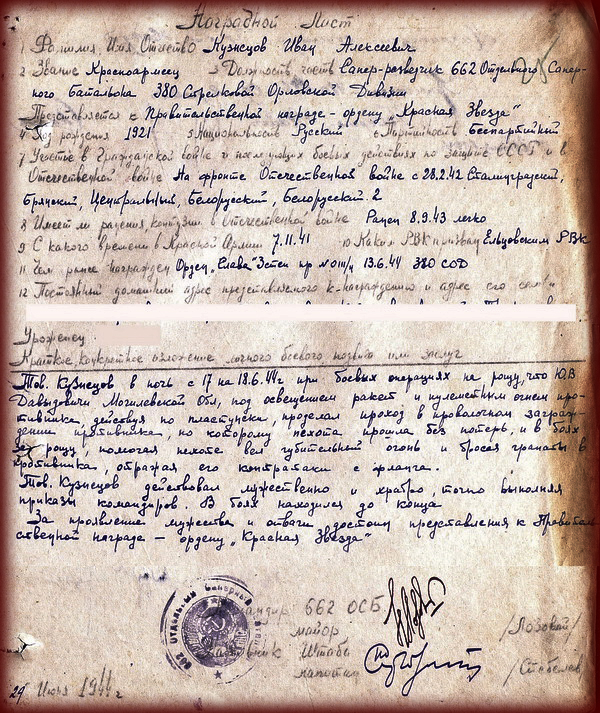 Наградной Лист
1 Фамилия, Имя, Отчество Кузнецов Иван Алексеевич
2 Звание Красноармеец 3 Должность, часть Сапер-разведчик 662 Отдельного Сапер-
ного батальона 380 Стрелковой Орловской Дивизии
Представляется к Правительственной награде - ордену "Красная Звезда"
4 Год рождения 1921 5 Национальность Русский 6 Партийность Беспартийный
7 Участие в Гражданской войне и последующих боевых действиях по защите СССР и в
Отечественной войне На фронте Отечественной войны с 28.2.42 Сталинградский,
Брянский, Центральный, Белорусский, Белорусский 2
8 Имеет ли ранения, контузии в Отечественной войне Ранен 8.9.43 легко
9 С какого времени в Красной Армии 7.11.41 10 Каким РВК призван Ельцовским РВК
11 Чем ранее награжден Орден "Слава" 3 степ пр № 13.6.44 380 СОД
12 Постоянный домашний адрес представляемого к награждению и адрес его семьи
Уроженец
Краткое, конкретное изложение личного боевого подвига или заслуг
Тов. Кузнецов в ночь с 17 на 18.6.44г при боевых операциях на рощу, что Ю.В
Давыдовичи Могилевской Обл, под освещением ракет и пулеметным огнем про-
тивника, действуя по пластунски, проделал проход в проволочном заграж-
дении противника, по которому пехота прошла без потерь, и в боях
за рощу, помогая пехоте вел губительный огонь и бросая гранаты в
противника, отражая его контратаки с фланга.
Тов. Кузнецов действовал мужественно и храбро, точно выполняя
приказы командиров. В боях находился до конца
За проявление мужества и отваги достоин представления к Правитель-
ственной награде - ордену "Красная Звезда"
Командир 662 ОСБ
майор /Лозовой/
Начальник Штаба
капитан
662 ОТДЕЛЬНЫЙ САПЕРНЫЙ
29 Июня 1944г